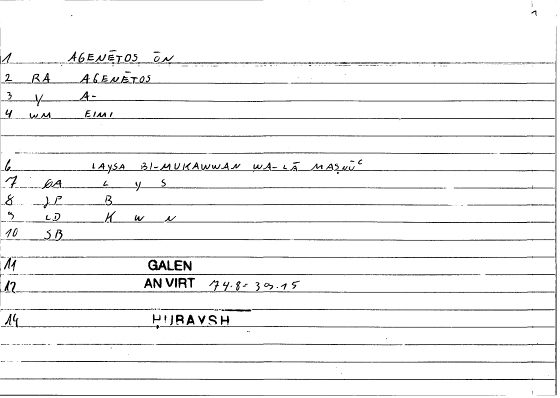 1
1 AGENĒTOS ŌN
2 RA AGENĒTOS
3 V A-
4 WM EIMI
6 LAYSA BI-MUKAWWAN WA-LĀ MAṢNŪʿ
7 GA L Y S
8 JP B
9 LD K W N
10 SB
11 GALEN
12 AN VIRT 74.8-39.15
14 ḤUBAYSH